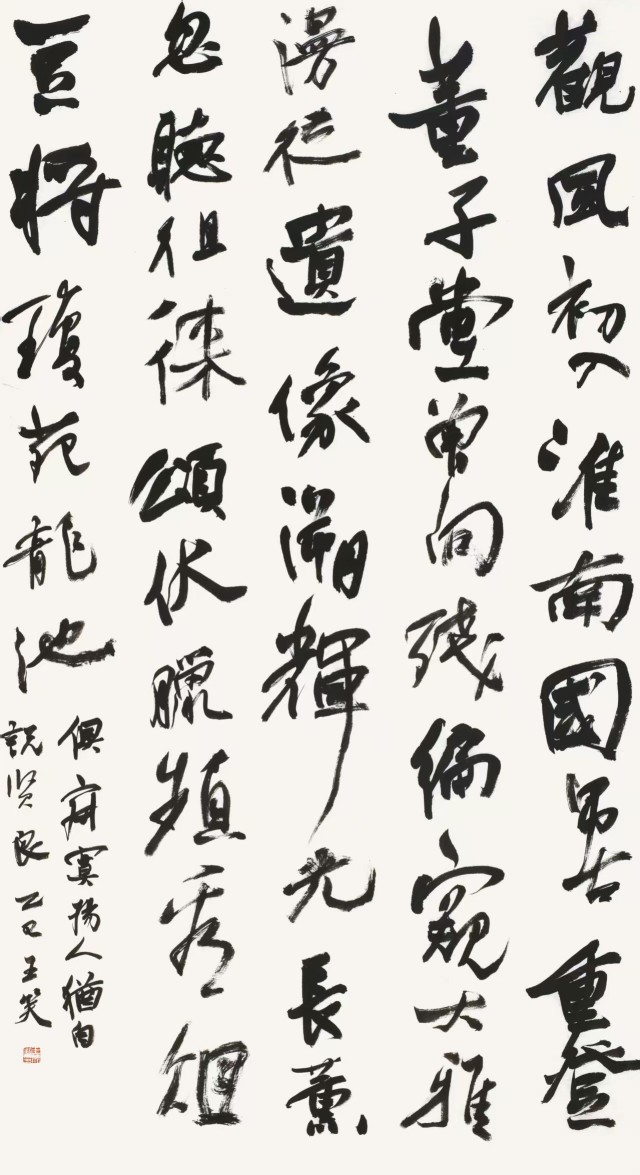 觀風初入淮南國吊古重登
董子堂曾向殘編窺大雅
漫從遺像溯輝光長薰
忽聽徂徠頌伏臘頻看俎
豆將瓊苑龍池
俱寂寞揚人猶自
說賢良乙巳王笑